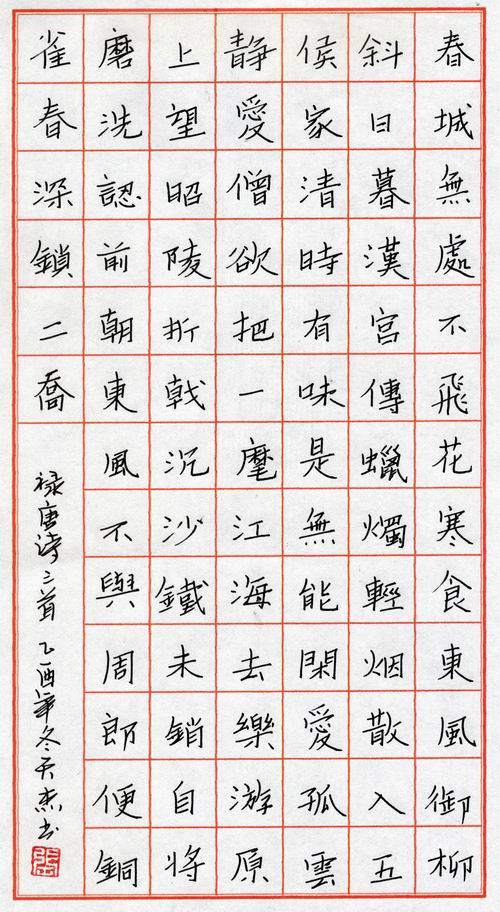 春城無處不飛花寒食東風御柳
斜日暮漢宮傳蠟燭輕烟散入五
侯家清時有味是無能閑愛孤雲
靜愛僧欲把一麾江海去樂游原
上望昭陵折戟沉沙鐵未銷自將
磨洗認前朝東風不與周郎便銅
雀春深鎖二喬
禄唐詩三首 乙酉年冬天杰书